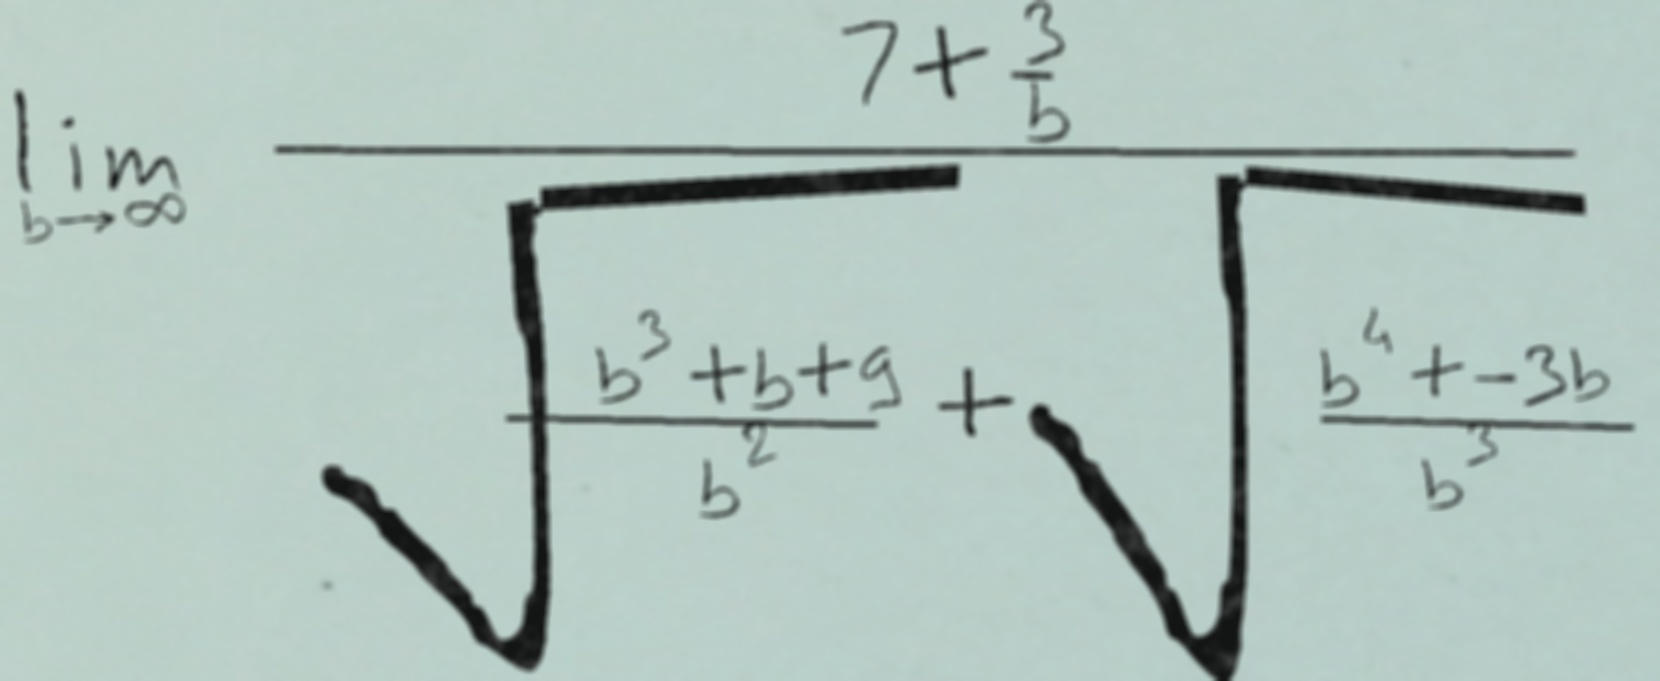 \lim_{b \to \infty} \frac{7 + \frac{3}{b}}{\sqrt{\frac{b^3 + b + 9}{b^2}} + \sqrt{\frac{b^4 + -3b}{b^3}}}